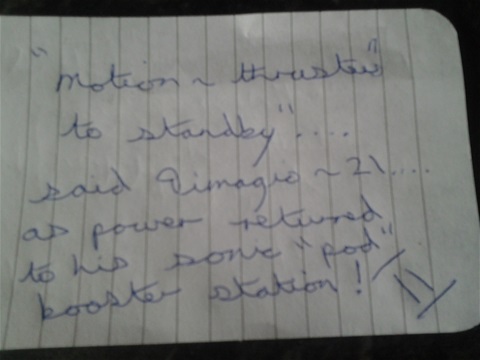 "Motion ~ thrusters"
to standby"....
said Dimagio ~ 21....
as power returned
to his sonic "pod"
booster station!